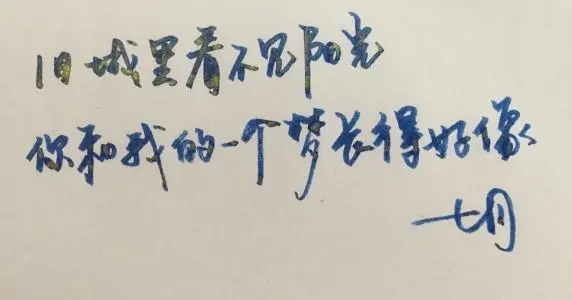 旧城里看不见阳光
你和我的一个梦长得好像
七月